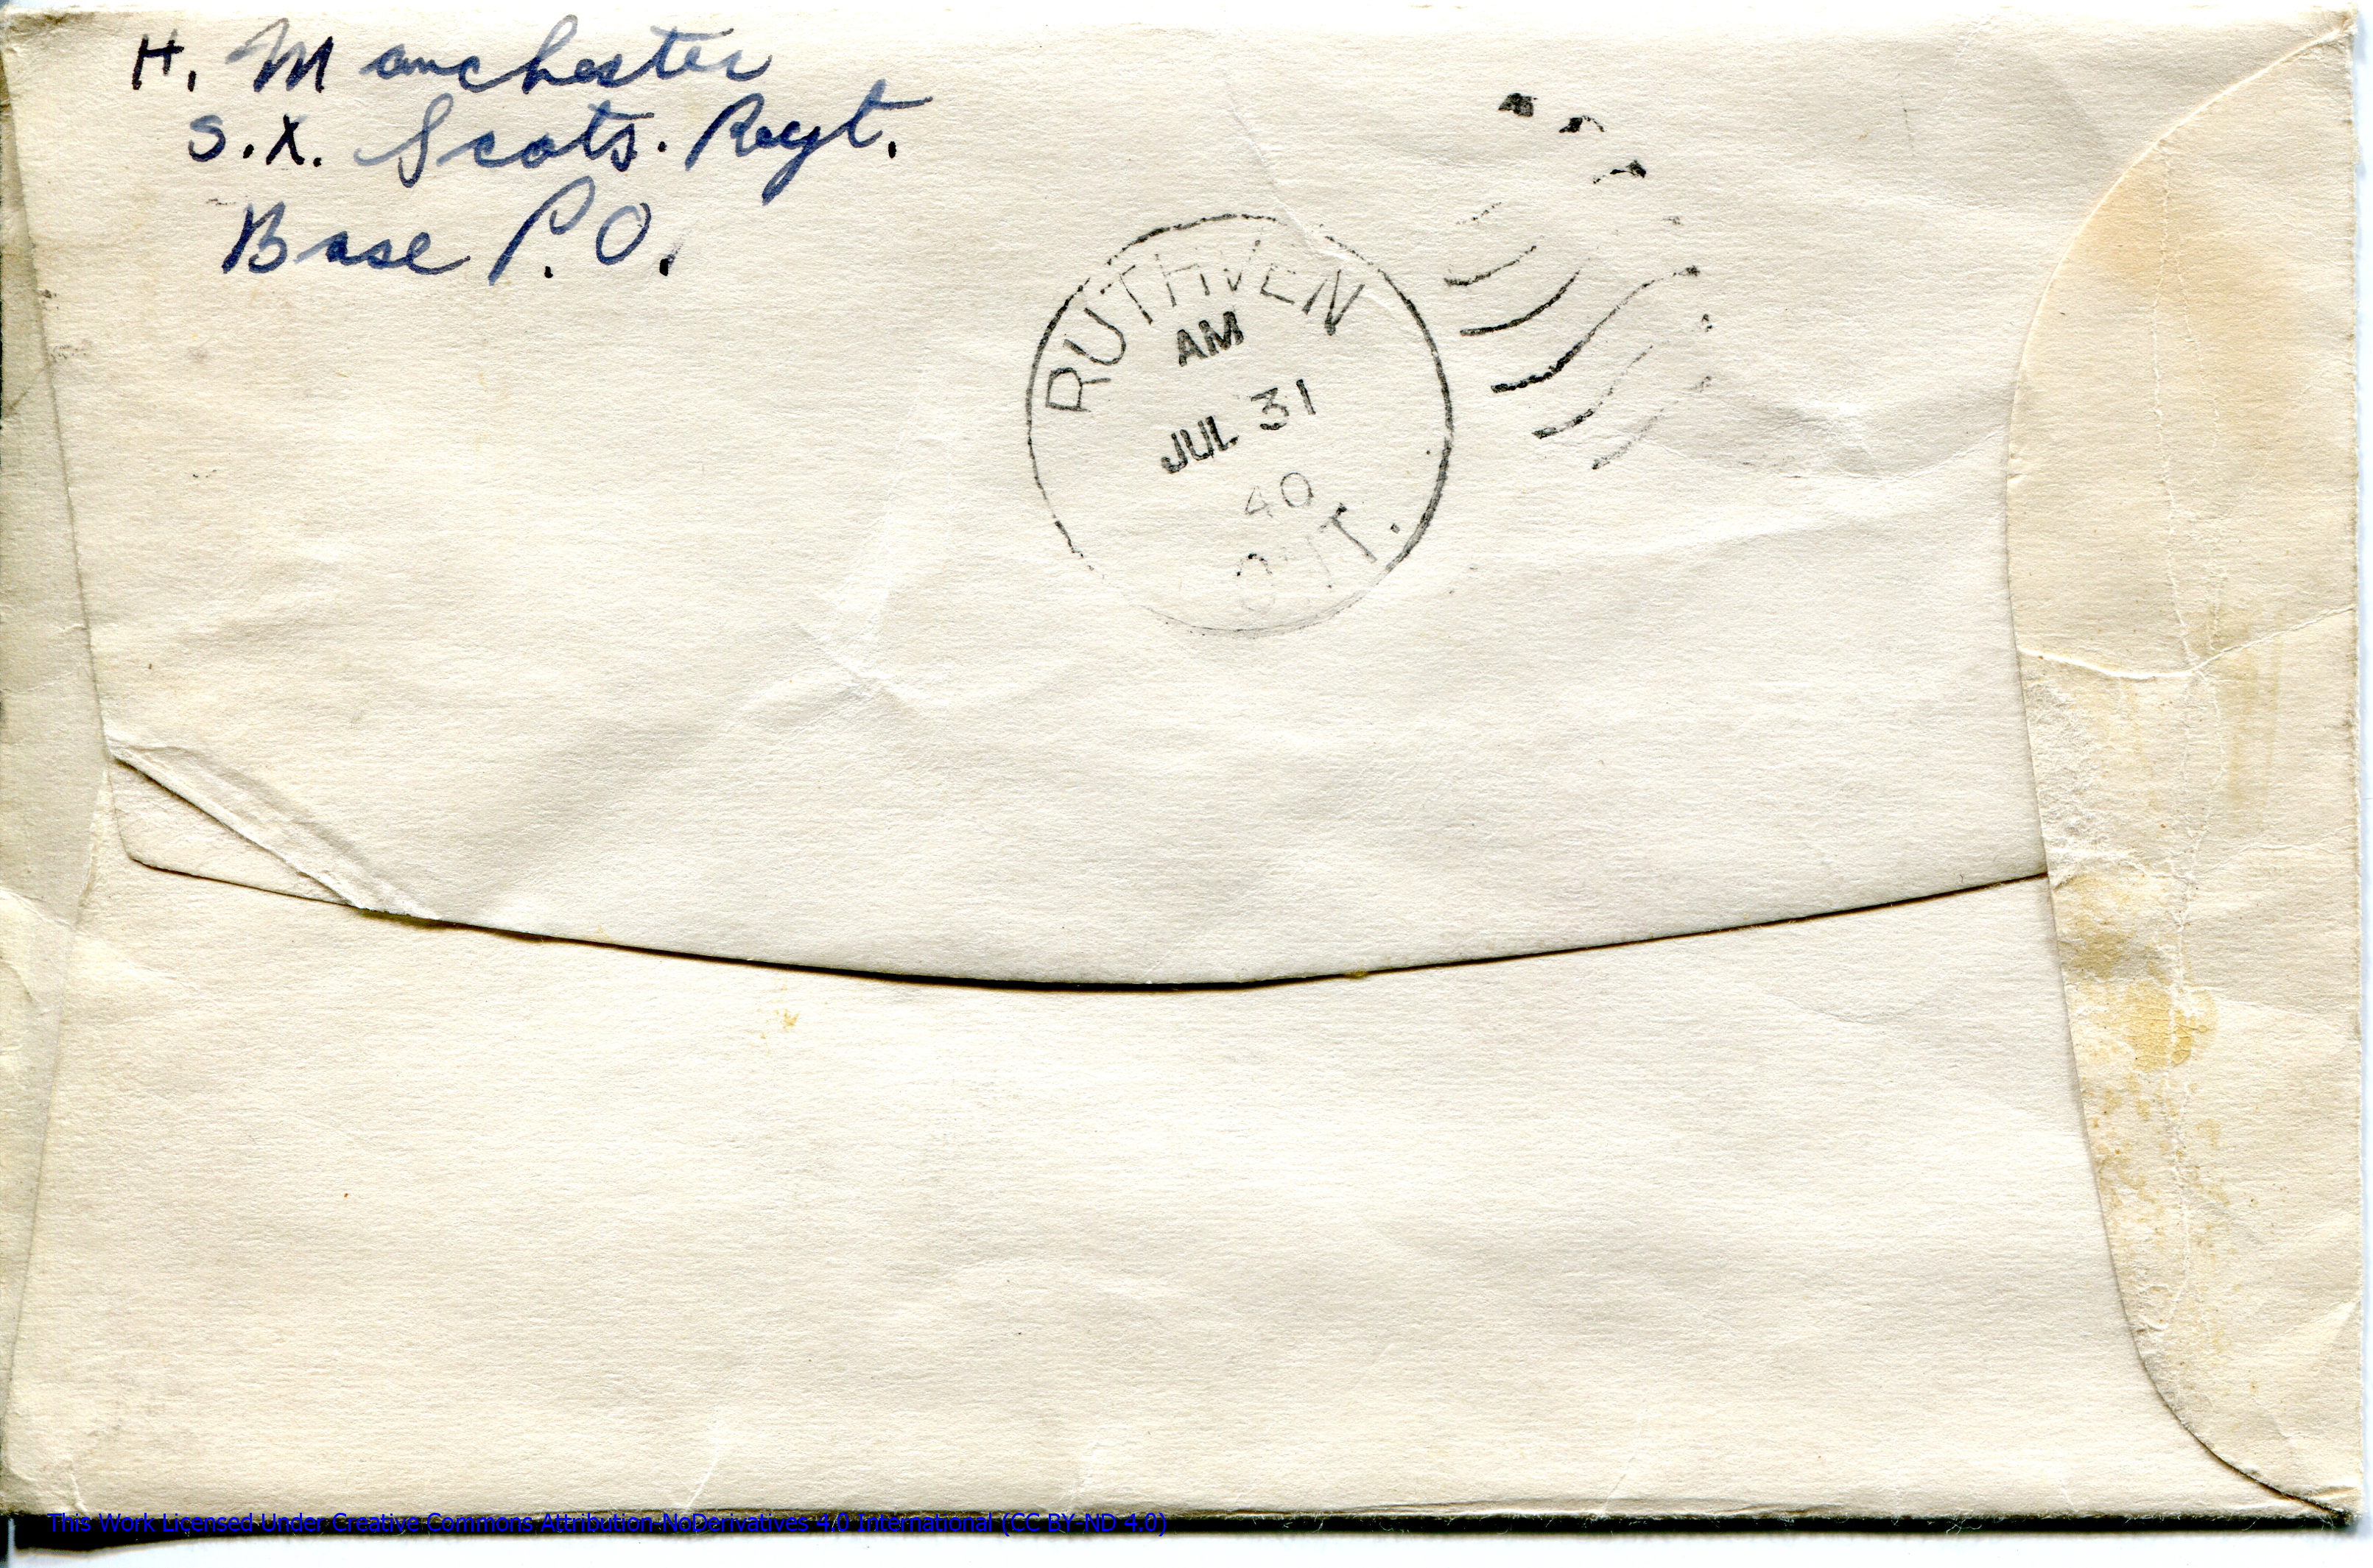 H. Manchester
S.X. Scots. Regt.
Base P.O.
RUTHVEN
AM
JUL 31
40
ONT.
This Work Licensed Under Creative Commons Attribution-NoDerivatives 4.0 International (CC BY-ND 4.0)